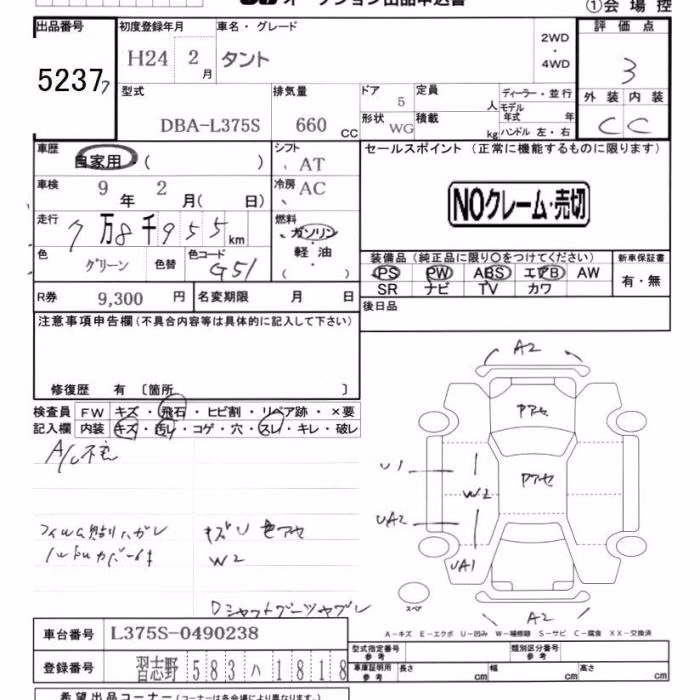 オークション出品申込書
①会場控
出品番号
52377
初度登録年月
H24 2月
車名・グレード
タント
2WD
・
4WD
評価点
3
型式
DBA-L375S
排気量
660 CC
ドア
5
形状
WG
定員
人
積載
kg
ディーラー・並行
モデル年式 年
ハンドル 左・右
外装 内装
C C
車歴
自家用・( )
シフト
AT
セールスポイント (正常に機能するものに限ります)
車検
9年 2月( 日)
冷房
AC
NOクレーム・売切
走行
7万8千955km
燃料
ガソリン
軽油
( )
色
グリーン
色替
色コード
G51
装備品 (純正品に限り○をつけてください)
新車保証書
PS PW ABS エアB AW
有・無
SR ナビ TV カワ
R券 9,300 円
名変期限 月 日
後日品
注意事項申告欄(不具合内容等は具体的に記入して下さい)
修復歴 有 〔箇所 〕
検査員 FW キズ・飛石・ヒビ割・リペア跡・×要
記入欄 内装 キズ・汚レ・コゲ・穴・スレ・キレ・破レ
A/C不良
フィルム貼りハガレ
キズU 色アセ
W2
Dシャフトブーツヤブレ
A2
アアセ
アアセ
U1
W2
UA2
UA1
A2
スペア
A-キズ E-エクボ U-凹み W-補修跡 S-サビ C-腐食 XX-交換済
車台番号 L375S-0490238
登録番号 習志野 583 ハ 1818
型式指定番号
参考
類別区分番号
参考
車庫証明用
参考
長さ cm
幅 cm
高さ cm
希望出品コーナー(コーナーは各会場により異なります。)